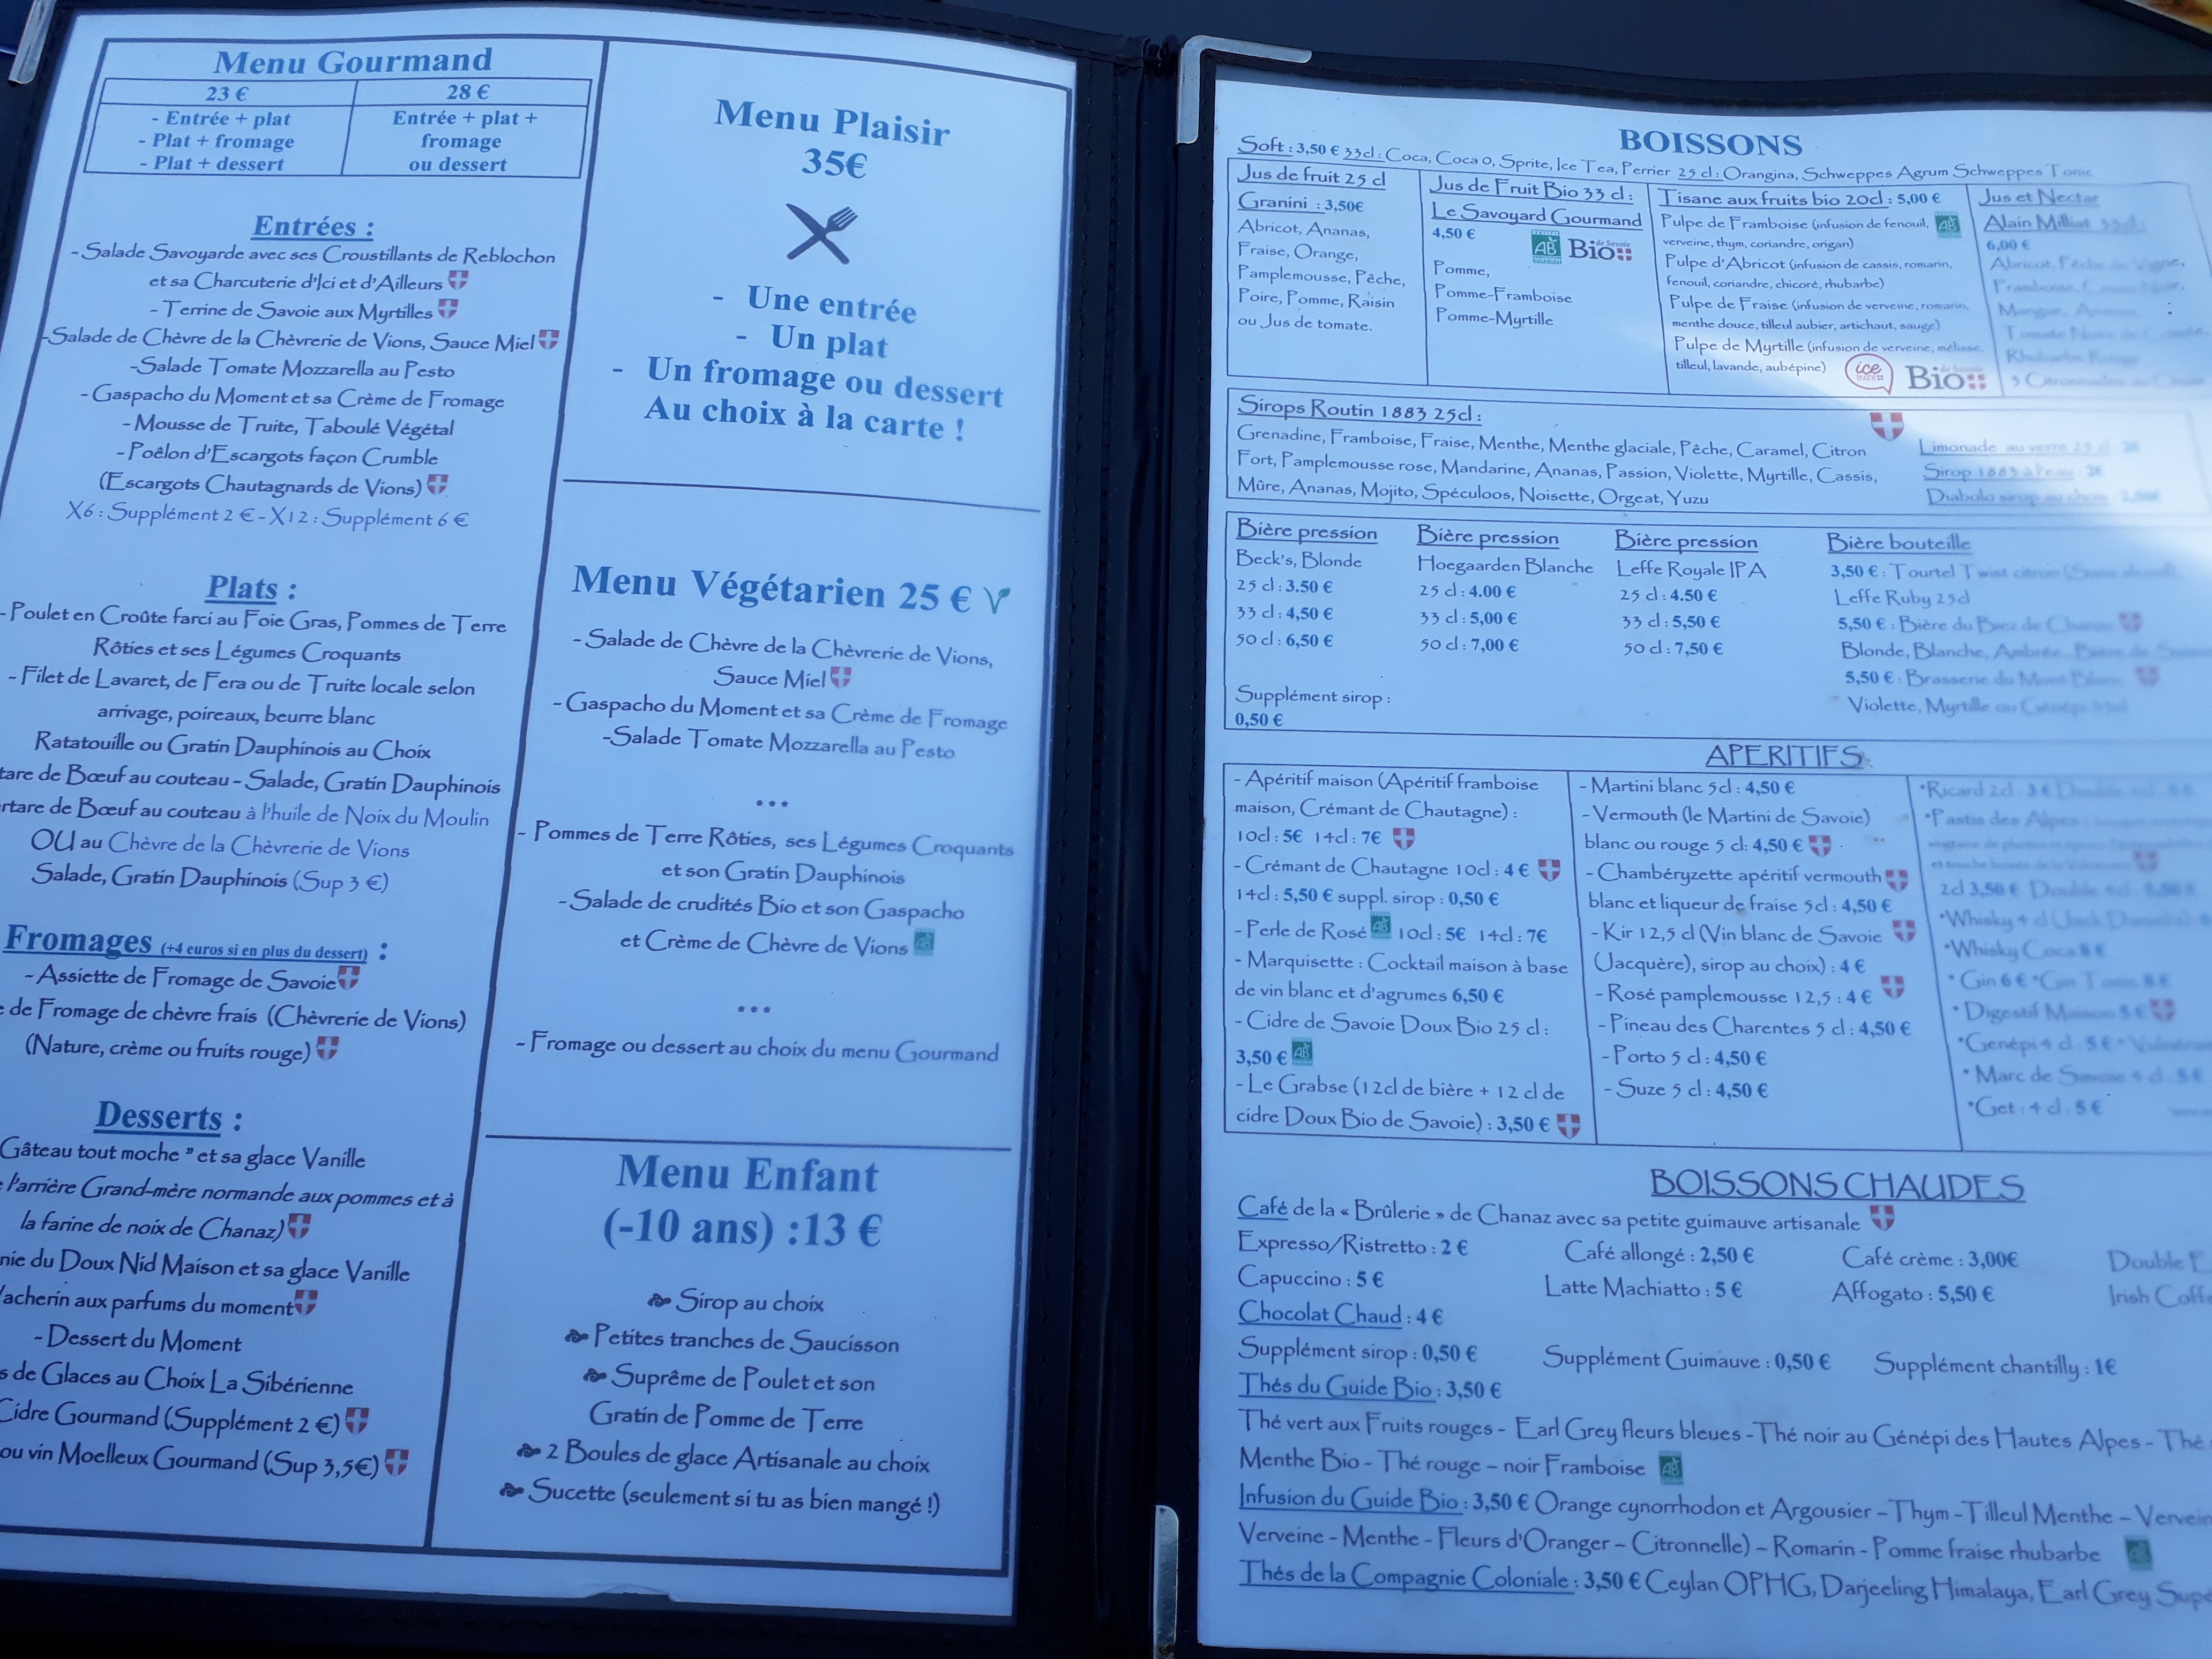 Menu Gourmand
23 €
- Entrée + plat
- Plat + fromage
- Plat + dessert
28 €
Entrée + plat +
fromage
ou dessert
Entrées :
- Salade Savoyarde avec ses Croustillants de Reblochon
et sa Charcuterie d'Ici et d'Ailleurs
- Terrine de Savoie aux Myrtilles
-Salade de Chèvre de la Chèvrerie de Vions, Sauce Miel
-Salade Tomate Mozzarella au Pesto
- Gaspacho du Moment et sa Crème de Fromage
- Mousse de Truite, Taboulé Végétal
- Poêlon d'Escargots façon Crumble
(Escargots Chautagnards de Vions)
X6 : Supplément 2 € - X12 : Supplément 6 €
Plats :
- Poulet en Croûte farci au Foie Gras, Pommes de Terre
Rôties et ses Légumes Croquants
- Filet de Lavaret, de Fera ou de Truite locale selon
arrivage, poireaux, beurre blanc
Ratatouille ou Gratin Dauphinois au Choix
de Bœuf au couteau - Salade, Gratin Dauphinois
de Bœuf au couteau à l'huile de Noix du Moulin
OU au Chèvre de la Chèvrerie de Vions
Salade, Gratin Dauphinois (Sup 3 €)
Fromages (+4 euros si en plus du dessert) :
- Assiette de Fromage de Savoie
de Fromage de chèvre frais (Chèvrerie de Vions)
(Nature, crème ou fruits rouge)
Desserts :
Gâteau tout moche " et sa glace Vanille
l'arrière Grand-mère normande aux pommes et à
la farine de noix de Chanaz)
du Doux Nid Maison et sa glace Vanille
aux parfums du moment
- Dessert du Moment
de Glaces au Choix La Sibérienne
Cidre Gourmand (Supplément 2 €)
ou vin Moelleux Gourmand (Sup 3,5€)
Menu Plaisir
35€
- Une entrée
- Un plat
- Un fromage ou dessert
Au choix à la carte !
Menu Végétarien 25 €
- Salade de Chèvre de la Chèvrerie de Vions,
Sauce Miel
- Gaspacho du Moment et sa Crème de Fromage
-Salade Tomate Mozzarella au Pesto
***
- Pommes de Terre Rôties, ses Légumes Croquants
et son Gratin Dauphinois
- Salade de crudités Bio et son Gaspacho
et Crème de Chèvre de Vions AB
***
- Fromage ou dessert au choix du menu Gourmand
Menu Enfant
(-10 ans) :13 €
Sirop au choix
Petites tranches de Saucisson
Suprême de Poulet et son
Gratin de Pomme de Terre
2 Boules de glace Artisanale au choix
Sucette (seulement si tu as bien mangé !)
BOISSONS
Soft : 3,50 € 33cl : Coca, Coca 0, Sprite, Ice Tea, Perrier 25 cl : Orangina, Schweppes Agrum Schweppes Tonic
Jus de fruit 25 cl
Granini : 3,50€
Abricot, Ananas,
Fraise, Orange,
Pamplemousse, Pêche,
Poire, Pomme, Raisin
ou Jus de tomate.
Jus de Fruit Bio 33 cl :
Le Savoyard Gourmand
4,50 €
AB Bio de Savoie
Pomme,
Pomme-Framboise
Pomme-Myrtille
Tisane aux fruits bio 20cl : 5,00 €
Pulpe de Framboise (infusion de fenouil, AB
verveine, thym, coriandre, origan)
Pulpe d'Abricot (infusion de cassis, romarin,
fenouil, coriandre, chicoré, rhubarbe)
Pulpe de Fraise (infusion de verveine, romarin,
menthe douce, tilleul aubier, artichaut, sauge)
Pulpe de Myrtille (infusion de verveine, mélisse,
tilleul, lavande, aubépine)
ice Bio de Savoie
Jus et Nectar
Alain Milliat 33cl :
6,00 €
Abricot, Pêche de Vigne,
Framboise, Cassis Noir,
Mangue, Ananas
Tomate
Rhubarbe
Sirops Routin 1883 25cl :
Grenadine, Framboise, Fraise, Menthe, Menthe glaciale, Pêche, Caramel, Citron
Fort, Pamplemousse rose, Mandarine, Ananas, Passion, Violette, Myrtille, Cassis,
Mûre, Ananas, Mojito, Spéculoos, Noisette, Orgeat, Yuzu
Limonade au verre 25 cl : 2€
Sirop 1883 à l'eau : 2€
Diabolo sirop au choix : 2,50€
Bière pression
Beck's, Blonde
25 cl : 3.50 €
33 cl : 4,50 €
50 cl : 6,50 €
Supplément sirop :
0,50 €
Bière pression
Hoegaarden Blanche
25 cl : 4.00 €
33 cl : 5,00 €
50 cl : 7,00 €
Bière pression
Leffe Royale IPA
25 cl : 4.50 €
33 cl : 5,50 €
50 cl : 7,50 €
Bière bouteille
3,50 € : Tourtel Twist citron (Sans alcool),
Leffe Ruby 25cl
5,50 € : Bière du Biez de Chanaz
Blonde, Blanche, Ambrée,
5,50 € : Brasserie du Mont Blanc
Violette, Myrtille ou Génépi 33cl
APERITIFS
- Apéritif maison (Apéritif framboise
maison, Crémant de Chautagne) :
10cl : 5€ 14cl : 7€
- Crémant de Chautagne 10cl : 4 €
14cl : 5,50 € suppl. sirop : 0,50 €
- Perle de Rosé AB 10cl : 5€ 14cl : 7€
- Marquisette : Cocktail maison à base
de vin blanc et d'agrumes 6,50 €
- Cidre de Savoie Doux Bio 25 cl :
3,50 € AB
- Le Grabse (12cl de bière + 12 cl de
cidre Doux Bio de Savoie) : 3,50 €
- Martini blanc 5cl : 4,50 €
- Vermouth (le Martini de Savoie)
blanc ou rouge 5 cl: 4,50 €
- Chambéryzette apéritif vermouth
blanc et liqueur de fraise 5cl : 4,50 €
- Kir 12,5 cl (Vin blanc de Savoie
(Jacquère), sirop au choix) : 4 €
- Rosé pamplemousse 12,5 : 4 €
- Pineau des Charentes 5 cl : 4,50 €
- Porto 5 cl : 4,50 €
- Suze 5 cl : 4,50 €
*Ricard 2cl : 3 € Double
*Pastis des Alpes :
2cl 3,50 € Double
*Whisky 4 cl (Jack Daniel's) :
*Whisky Coca 8 €
* Gin 6 € *Gin Tonic 8 €
* Digestif Maison 5 €
*Genépi 4 cl : 5 € *
* Marc de Savoie 4 cl : 5 €
*Get : 4 cl : 5 €
BOISSONS CHAUDES
Café de la « Brûlerie » de Chanaz avec sa petite guimauve artisanale
Expresso/Ristretto : 2 € Café allongé : 2,50 € Café crème : 3,00€ Double
Capuccino : 5 € Latte Machiatto : 5 € Affogato : 5,50 € Irish
Chocolat Chaud : 4 €
Supplément sirop : 0,50 € Supplément Guimauve : 0,50 € Supplément chantilly : 1€
Thés du Guide Bio : 3,50 €
Thé vert aux Fruits rouges - Earl Grey fleurs bleues -Thé noir au Génépi des Hautes Alpes - Thé
Menthe Bio - Thé rouge – noir Framboise AB
Infusion du Guide Bio : 3,50 € Orange cynorrhodon et Argousier – Thym - Tilleul Menthe –
Verveine - Menthe - Fleurs d'Oranger – Citronnelle) – Romarin - Pomme fraise rhubarbe AB
Thés de la Compagnie Coloniale : 3,50 € Ceylan OPHG, Darjeeling Himalaya, Earl Grey